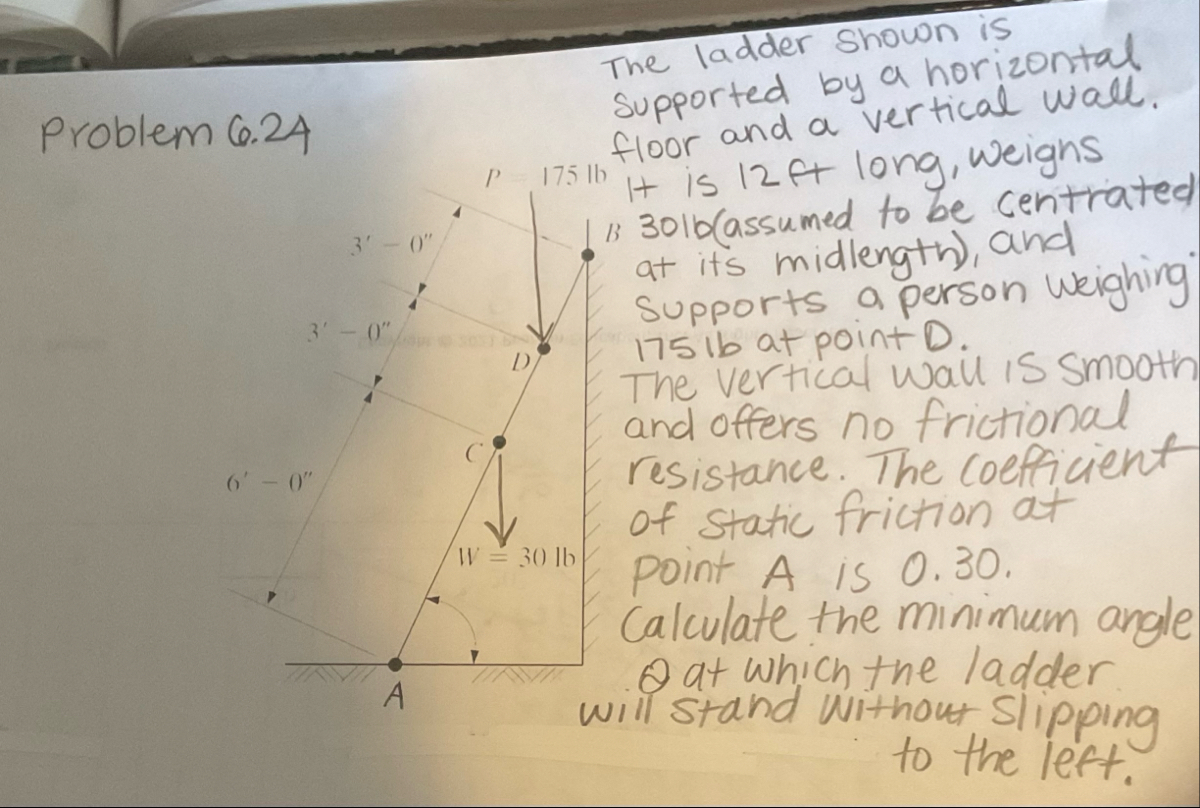 Problem 6.24
The ladder shown is
supported by a horizontal
floor and a vertical wall.
It is 12 ft long, weighs
30lb(assumed to be centrated
at its midlength), and
supports a person weighing
175 lb at point D.
The vertical wall is smooth
and offers no frictional
resistance. The coefficient
of static friction at
point A is 0.30.
Calculate the minimum angle
θ at which the ladder
will stand without slipping
to the left.
P = 175 lb
B
3' – 0"
3' – 0"
D
C
6' – 0"
W = 30 lb
A